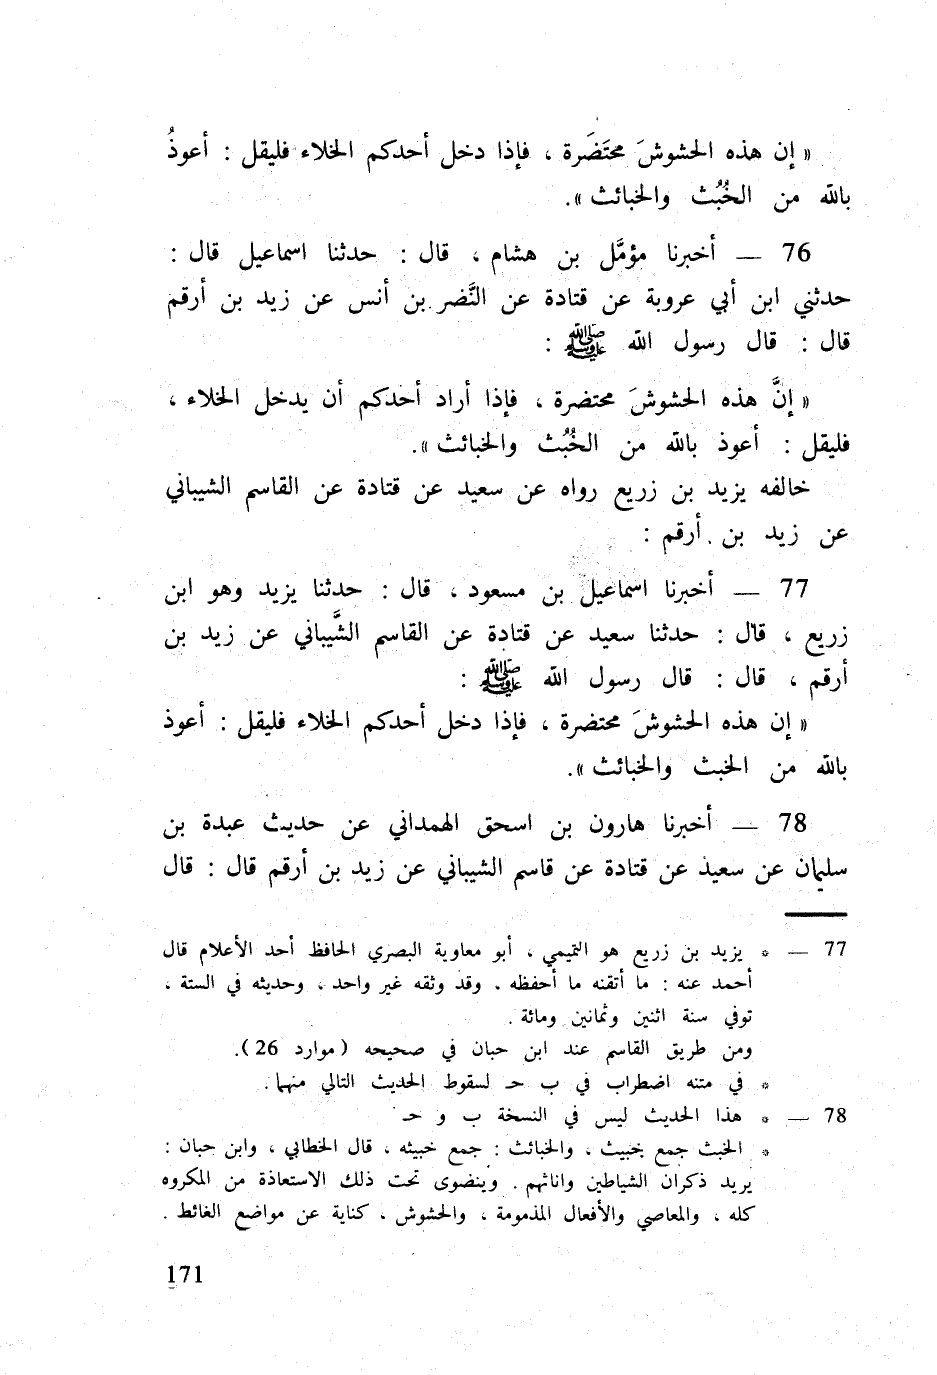 « إن هذه الحشوشَ محتَضَرة ، فإذا دخل أحدكم الخلاء فليقل : أعوذُ
بالله من الخُبُث والخبائث ».
76 — أخبرنا مؤمَّل بن هشام ، قال : حدثنا اسماعيل قال :
حدثني ابن أبي عروبة عن قتادة عن النَّضر بن أنس عن زيد بن أرقم
قال : قال رسول الله ﷺ :
« إنَّ هذه الحشوشَ محتضرة ، فإذا أراد أحدكم أن يدخل الخلاء ،
فليقل : أعوذ بالله من الخُبُث والخبائث ».
خالفه يزيد بن زريع رواه عن سعيد عن قتادة عن القاسم الشيباني
عن زيد بن أرقم :
77 — أخبرنا اسماعيل بن مسعود ، قال : حدثنا يزيد وهو ابن
زريع ، قال : حدثنا سعيد عن قتادة عن القاسم الشَّيباني عن زيد بن
أرقم ، قال : قال رسول الله ﷺ :
« إن هذه الحشوشَ محتضرة ، فإذا دخل أحدكم الخلاء فليقل : أعوذ
بالله من الخبث والخبائث ».
78 — أخبرنا هارون بن اسحق الهمداني عن حديث عبدة بن
سليمان عن سعيد عن قتادة عن قاسم الشيباني عن زيد بن أرقم قال : قال
77 — * يزيد بن زريع هو التميمي ، أبو معاوية البصري الحافظ أحد الأعلام قال
أحمد عنه : ما أتقنه ما أحفظه . وقد وثقه غير واحد ، وحديثه في الستة ،
توفي سنة اثنين وثمانين ومائة .
ومن طريق القاسم عند ابن حبان في صحيحه ( موارد 26 ).
* في متنه اضطراب في ب حـ لسقوط الحديث التالي منهما .
78 — * هذا الحديث ليس في النسخة ب و حـ
* الخبث جمع خبيث ، والخبائث : جمع خبيثه ، قال الخطابي ، وابن حبان :
يريد ذكران الشياطين واناثهم . وينضوى تحت ذلك الاستعاذة من المكروه
كله ، والمعاصي والأفعال المذمومة ، والحشوش ، كناية عن مواضع الغائط .
171